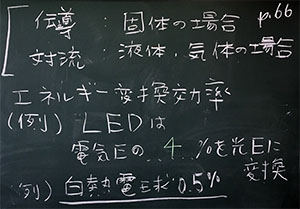 伝導：固体の場合 p.66
対流：液体，気体の場合
エネルギー変換効率
(例) LEDは
電気Eの 4 %を光Eに
変換
例) 白熱電球 0.5%